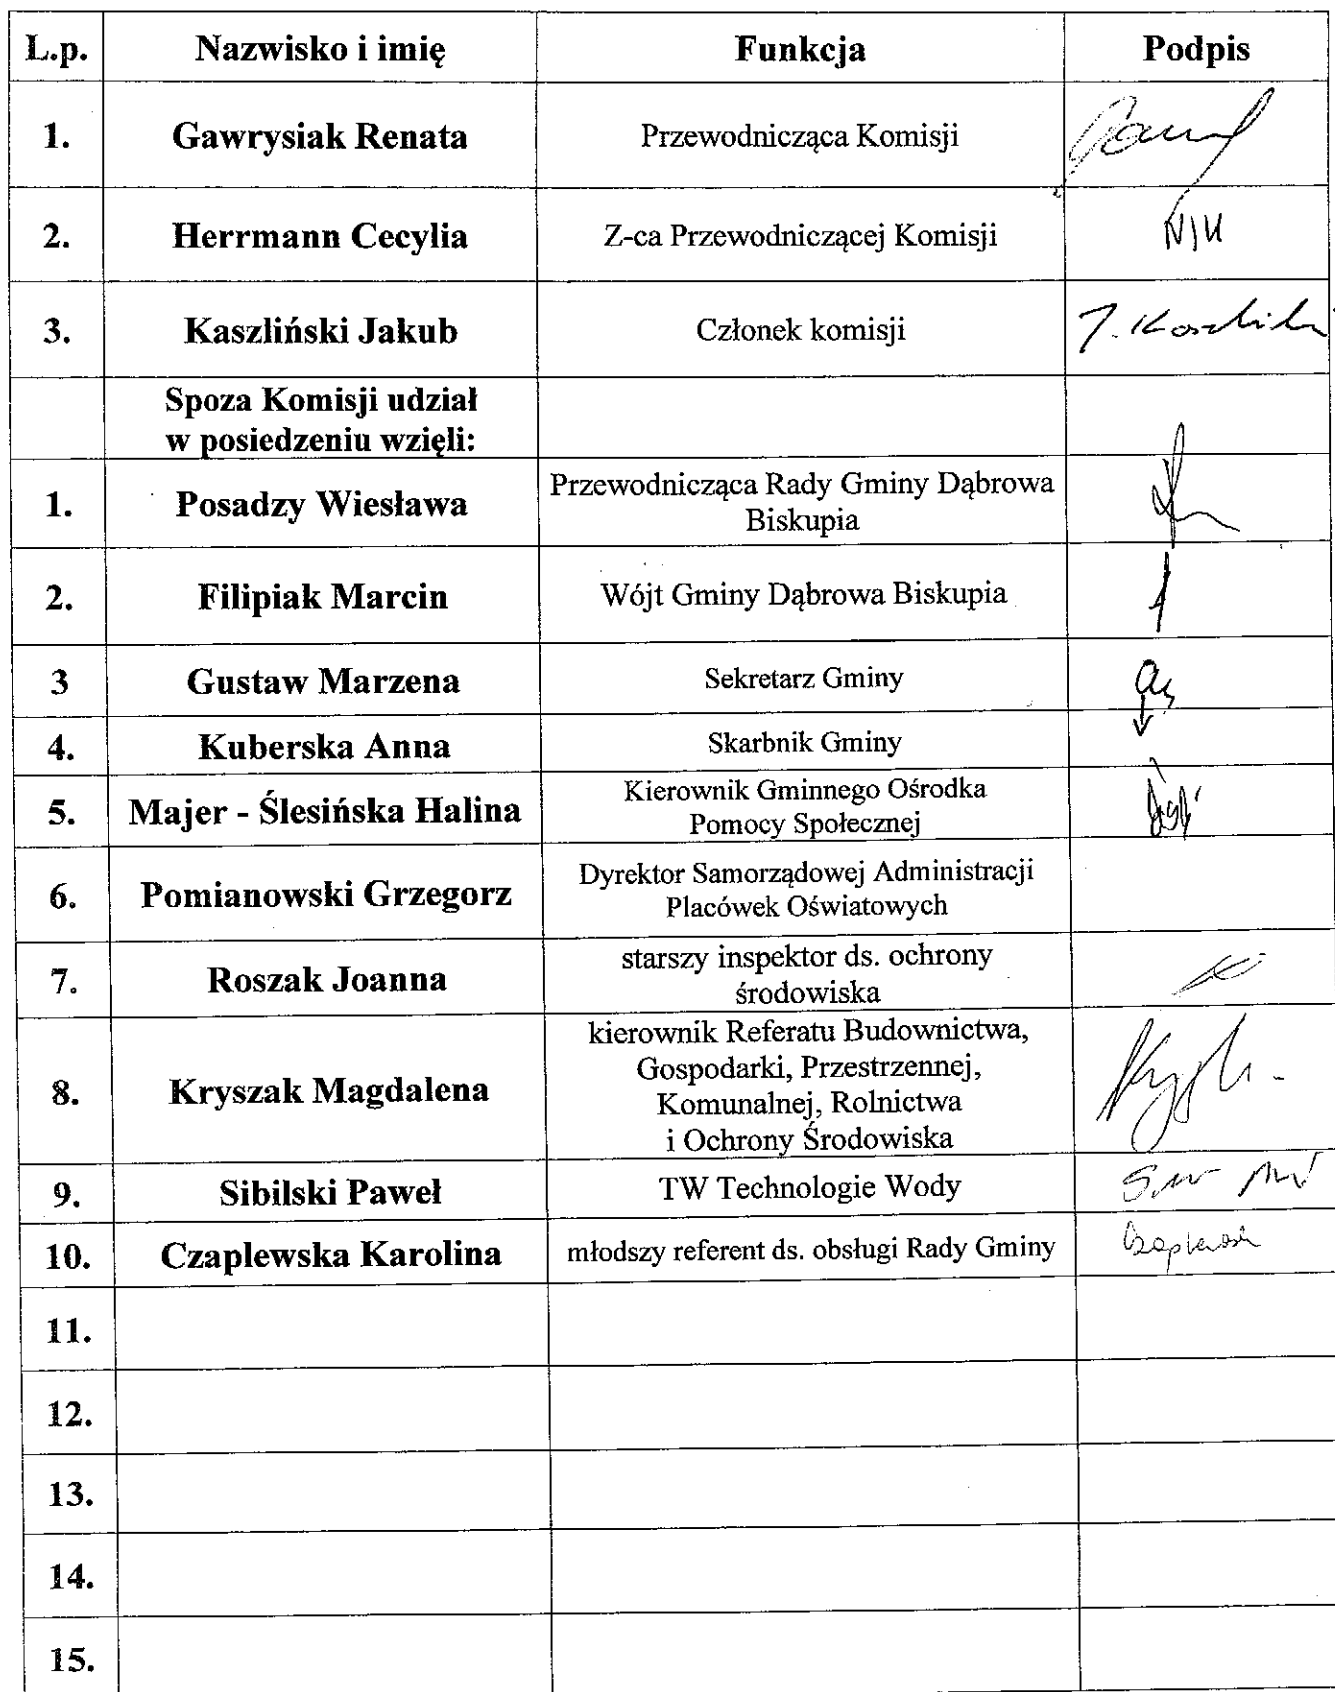 L.p. Nazwisko i imię Funkcja Podpis
1. Gawrysiak Renata Przewodnicząca Komisji
2. Herrmann Cecylia Z-ca Przewodniczącej Komisji
3. Kaszliński Jakub Członek komisji
Spoza Komisji udział
w posiedzeniu wzięli:
1. Posadzy Wiesława Przewodnicząca Rady Gminy Dąbrowa
Biskupia
2. Filipiak Marcin Wójt Gminy Dąbrowa Biskupia
3 Gustaw Marzena Sekretarz Gminy
4. Kuberska Anna Skarbnik Gminy
5. Majer - Ślesińska Halina Kierownik Gminnego Ośrodka
Pomocy Społecznej
6. Pomianowski Grzegorz Dyrektor Samorządowej Administracji
Placówek Oświatowych
7. Roszak Joanna starszy inspektor ds. ochrony
środowiska
8. Kryszak Magdalena kierownik Referatu Budownictwa,
Gospodarki, Przestrzennej,
Komunalnej, Rolnictwa
i Ochrony Środowiska
9. Sibilski Paweł TW Technologie Wody
10. Czaplewska Karolina młodszy referent ds. obsługi Rady Gminy
11.
12.
13.
14.
15.